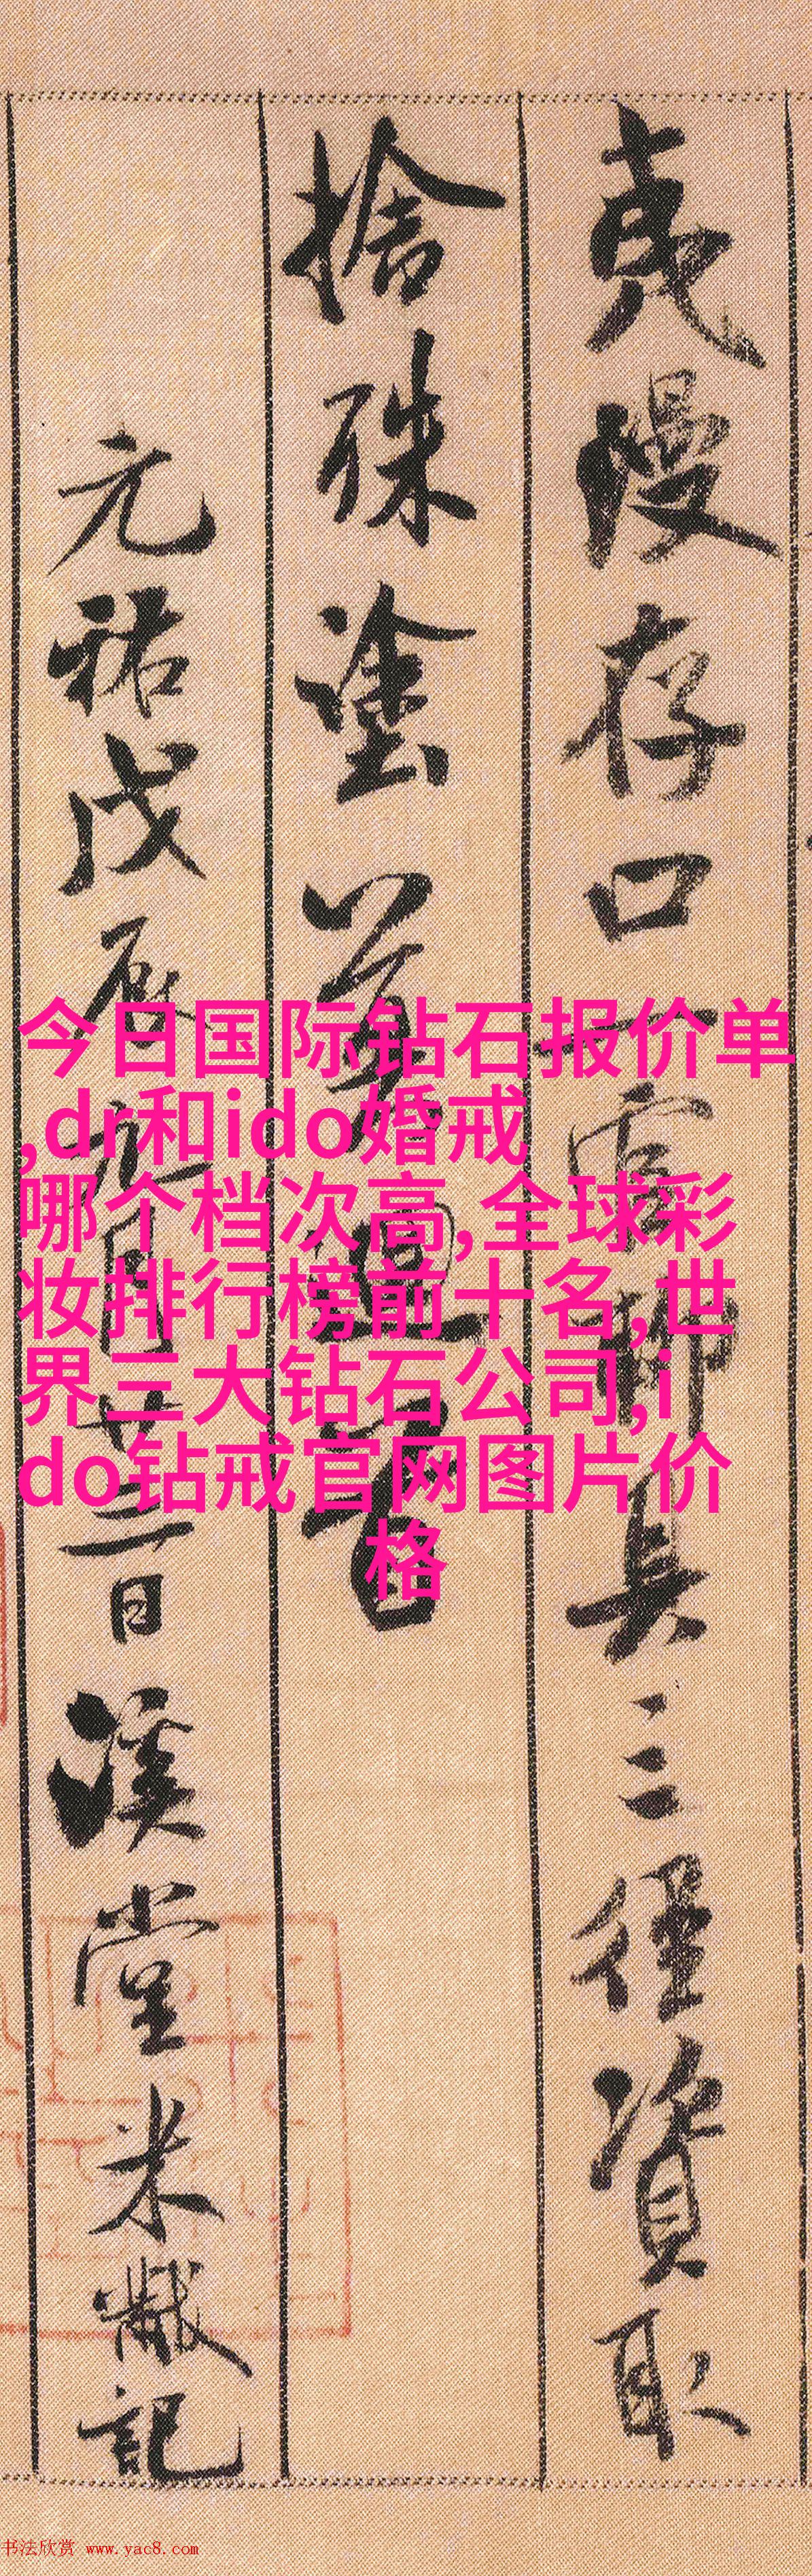 夷漫存口一官聊具三徑資取
捨殊塗莫回首
元祐戊辰九月廿三日溪堂米黻記
今日国际钻石报价单
,dr和ido婚戒
哪个档次高,全球彩
妆排行榜前十名,世
界三大钻石公司,i
do钻戒官网图片价
格
书法欣赏 www.yac8.com